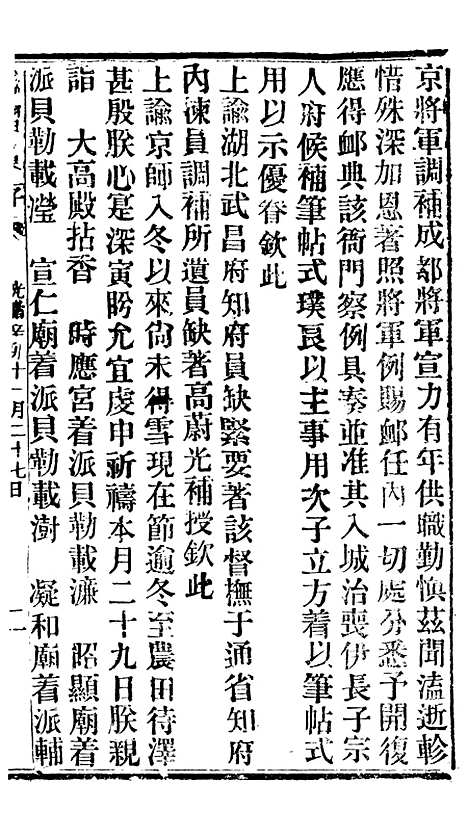 京將軍調補成都將軍宣力有年供職勤慎茲聞溘逝軫
惜殊深加恩著照將軍例賜䘏任內一切處分悉予開復
應得䘏典該衙門察例具奏並准其入城治喪伊長子宗
人府候補筆帖式璞良以主事用次子立方着以筆帖式
用以示優眷欽此
上諭湖北武昌府知府員缺緊要著該督撫于通省知府
內揀員調補所遺員缺著高蔚光補授欽此
上諭京師入冬以來尚未得雪現在節逾冬至農田待澤
甚殷朕心寔深寅盻允宜虔申祈禱本月二十九日朕親
詣　大高殿拈香　時應宮着派貝勒載濂　昭顯廟着
派貝勒載瀅　宣仁廟着派貝勒載澍　凝和廟着派輔
光緒辛卯十一月二十七日　二